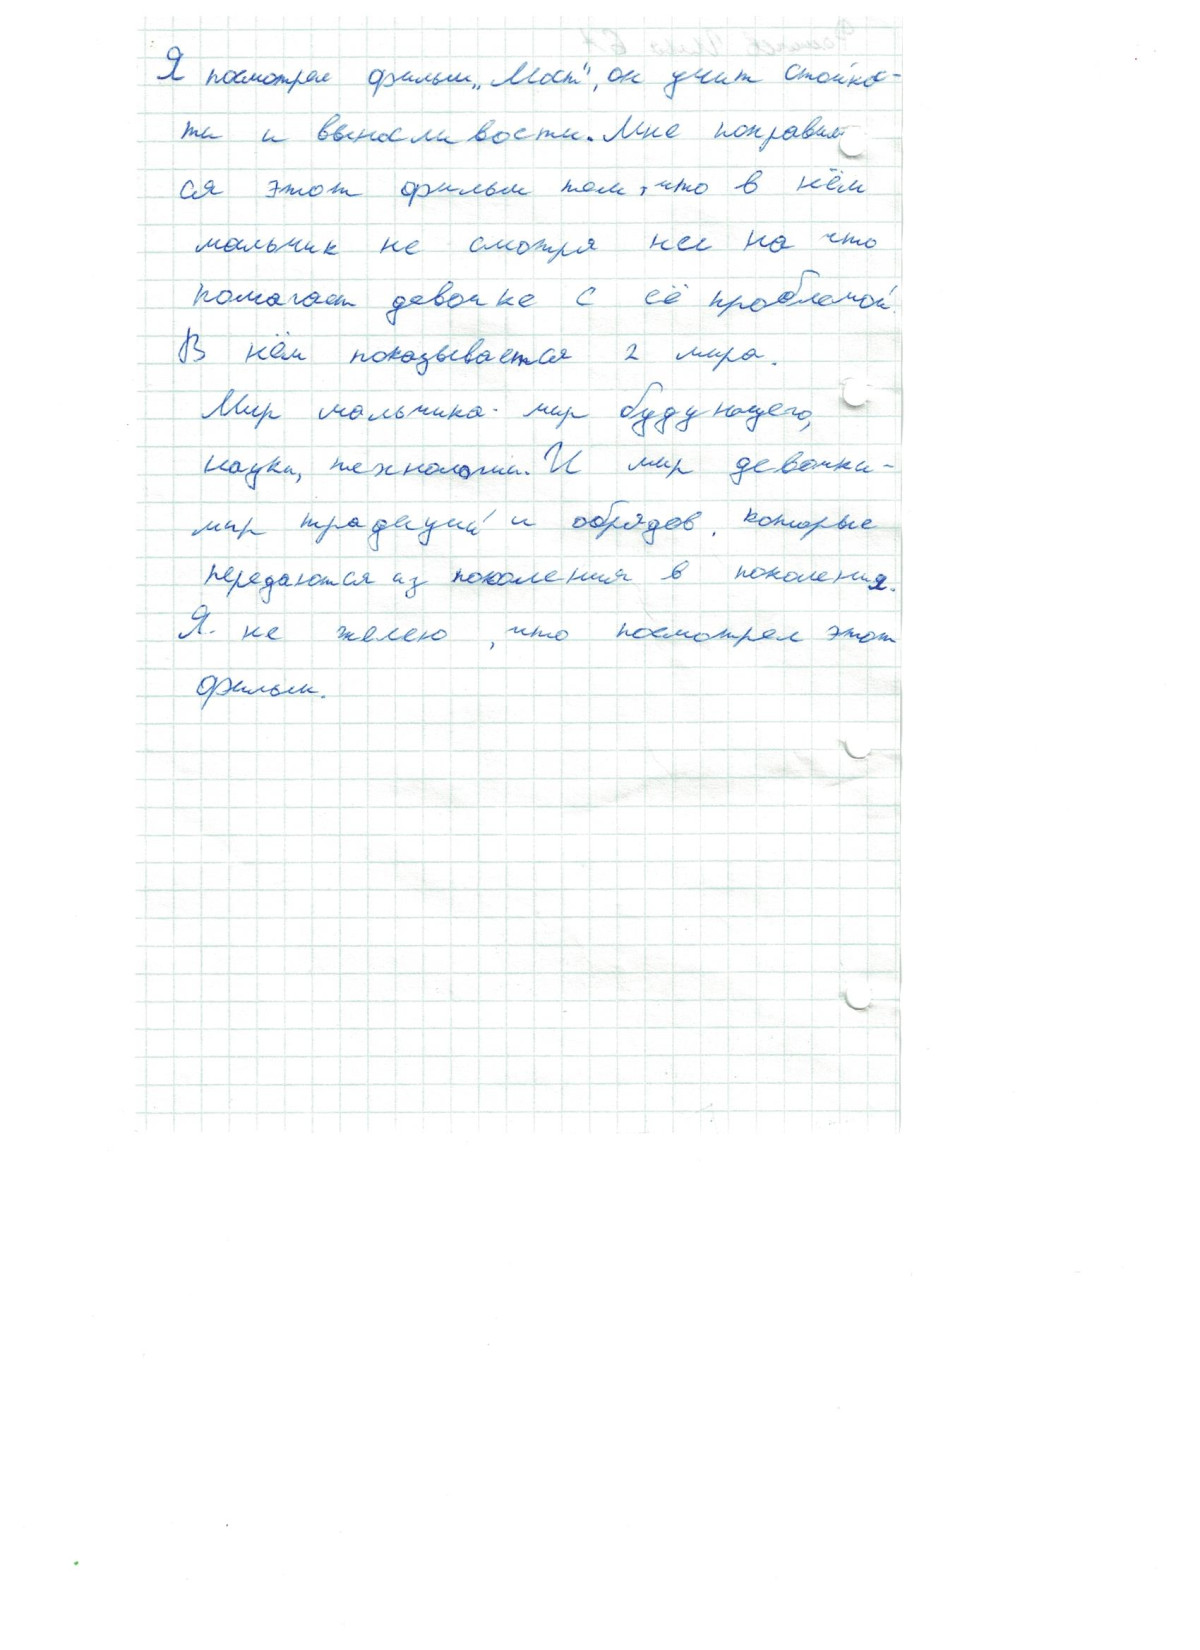 Я посмотрел фильм „Мост", он учит стойкос-
ти и выносливости. Мне понравил
ся этот фильм тем, что в нём
мальчик не смотря не на что
помагает девочке с её проблемой.
В нём показывается 2 мира.
Мир мальчика - мир будующего,
науки, технологии. И мир девочки -
мир традиций и обрядов, которые
передаются из поколения в поколения.
Я не желею, что посмотрел этот
фильм.